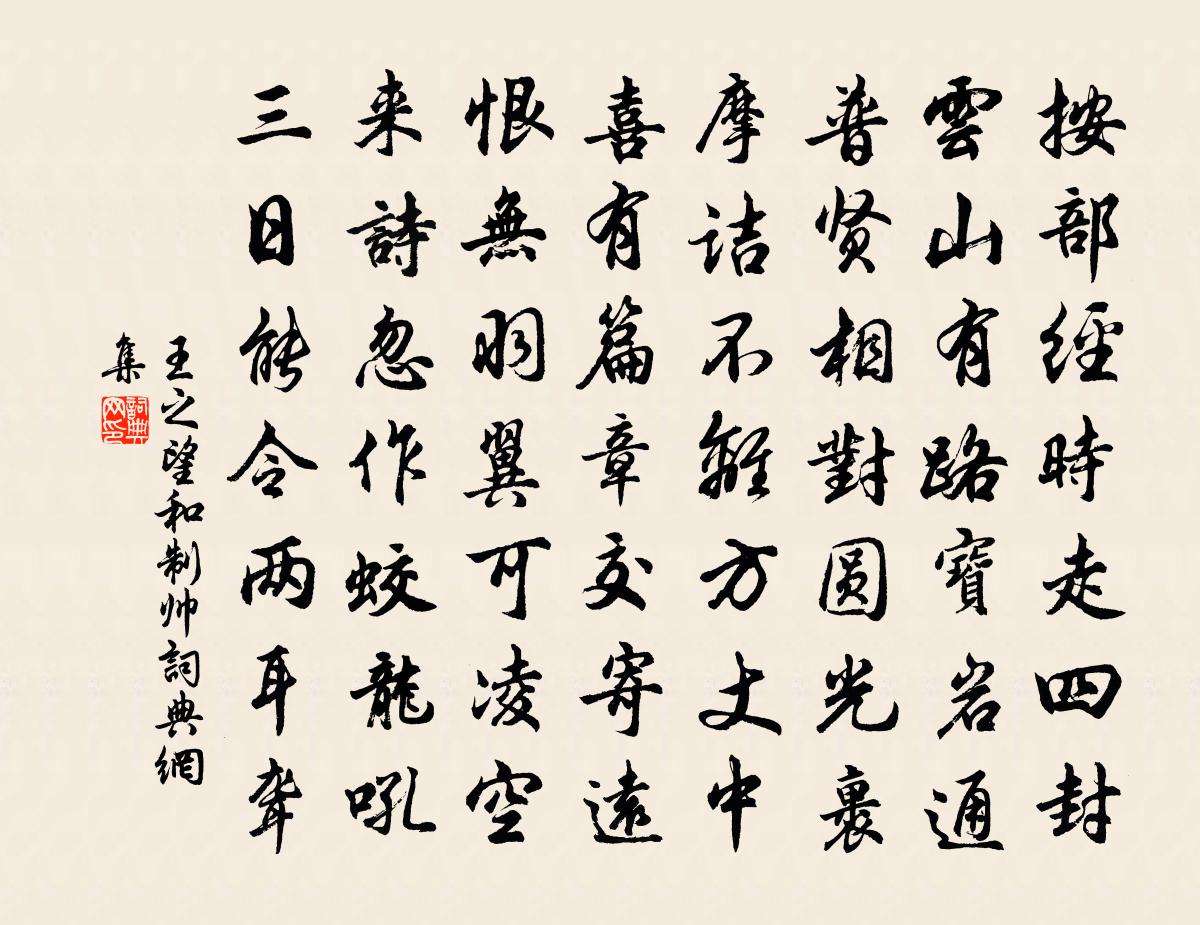 按部經時走四封
雲山有路寶岩通
普贤相對圆光裹
摩詰不離方丈中
喜有篇章交寄遠
恨無羽翼可凌空
来詩忽作蛟龍吼
三日能令两耳聋
王之望和制帅詞典網
集
詞典网印